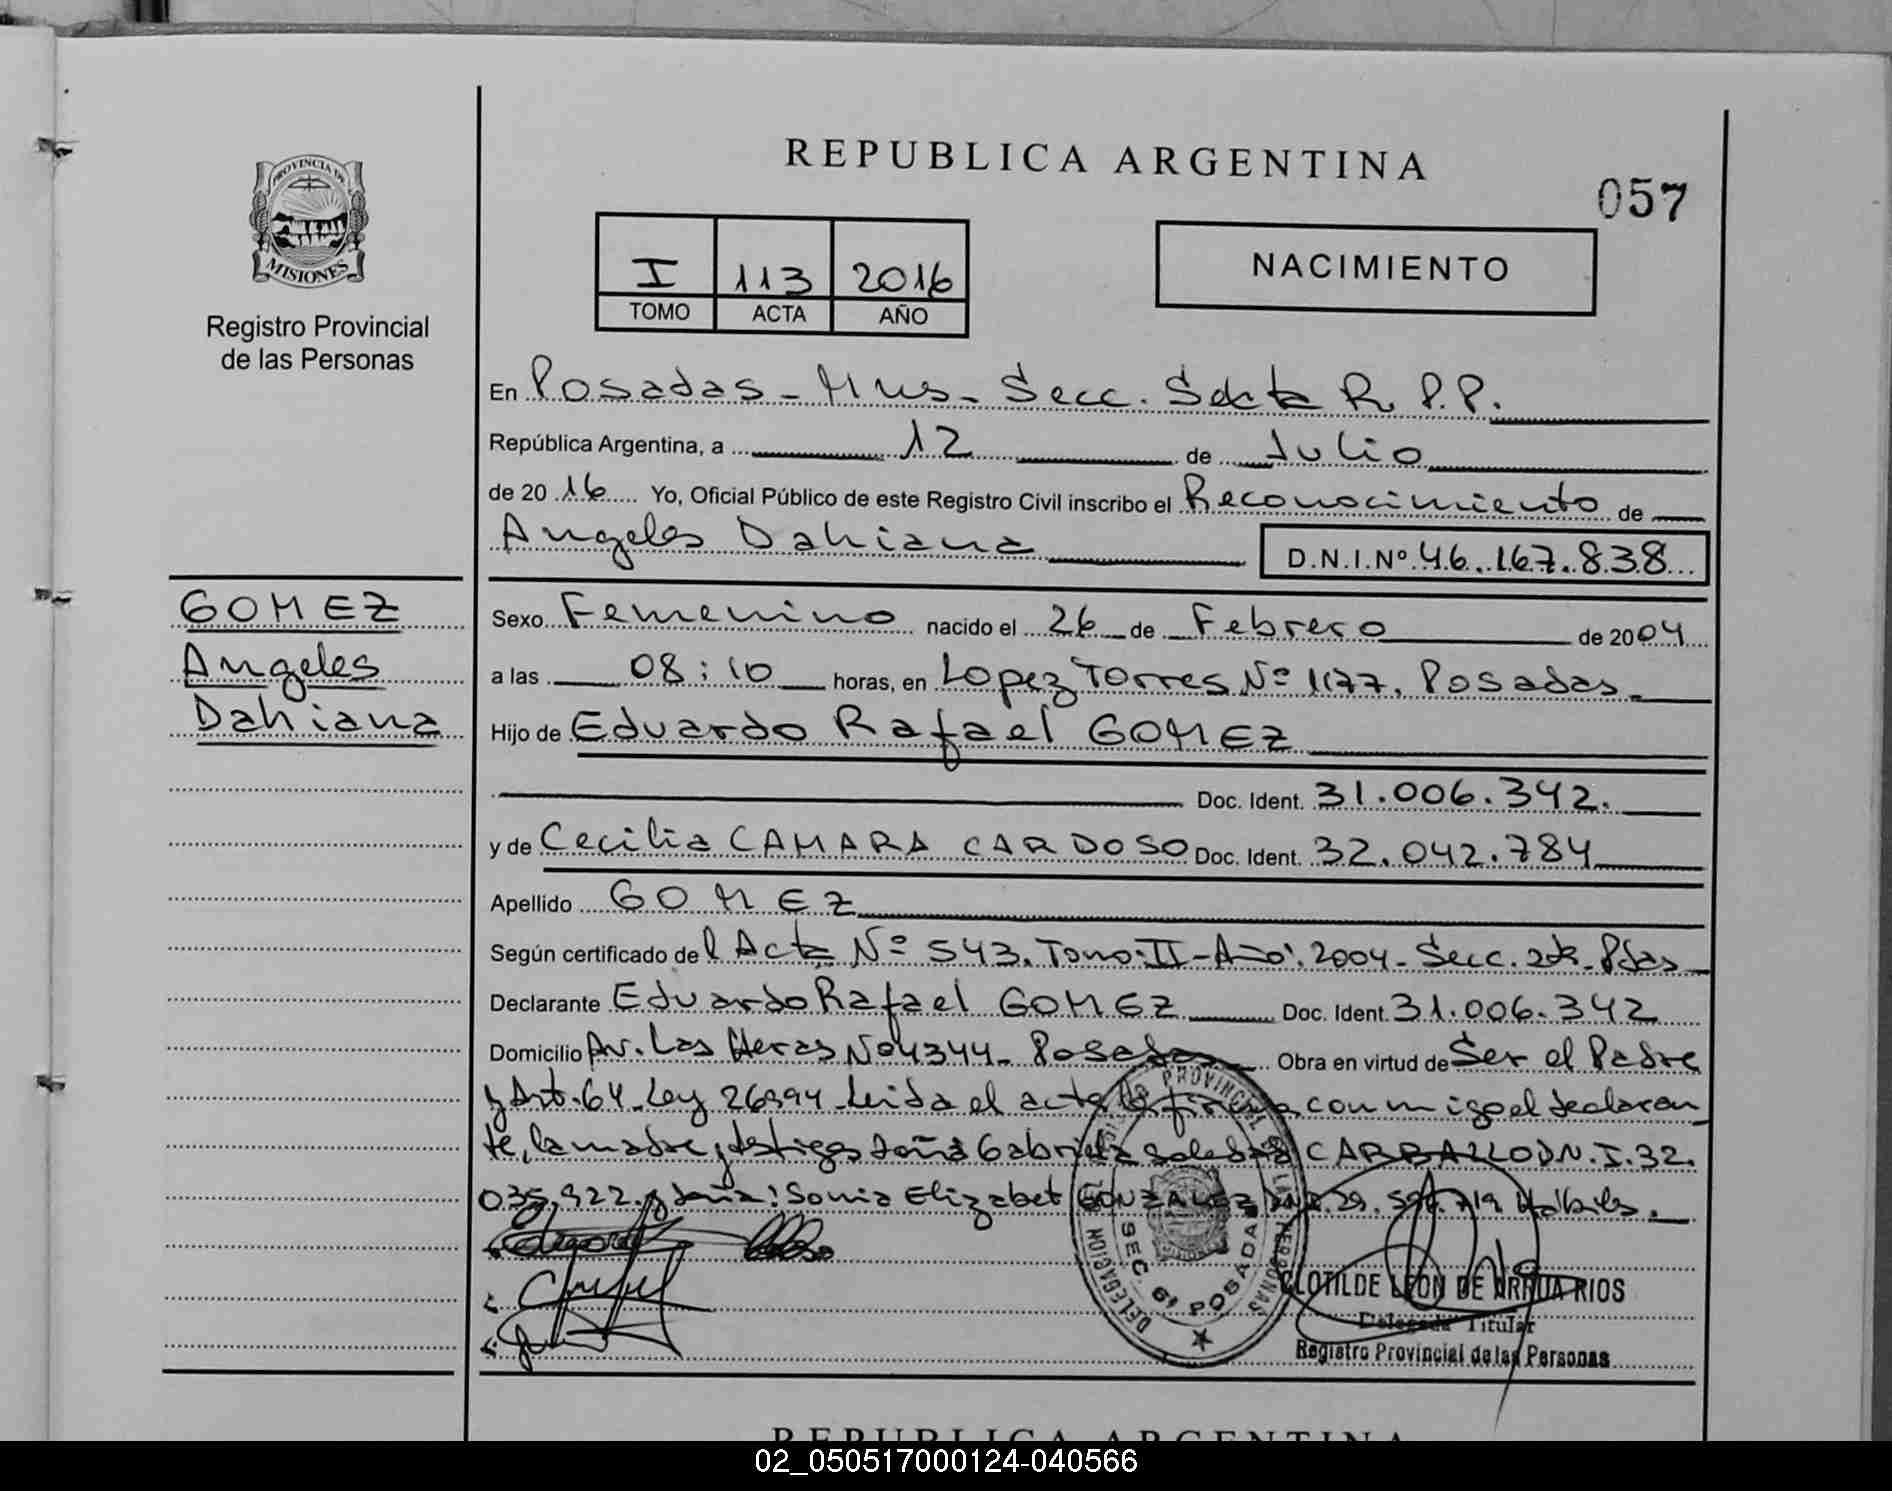 REPUBLICA ARGENTINA
057
PROVINCIA DE
MISIONES
Registro Provincial
de las Personas
I 113 2016
TOMO ACTA AÑO
NACIMIENTO
En Posadas - Mns - Secc. Sexta R. P.P.
República Argentina, a 12 de Julio
de 2016 Yo, Oficial Público de este Registro Civil inscribo el Reconocimiento de
Angeles Dahiana D.N.I.Nº 46.167.838
GOMEZ
Angeles
Dahiana
Sexo Femenino nacido el 26 de Febrero de 2004
a las 08:10 horas, en Lopez Torres Nº 1177. Posadas.
Hijo de Eduardo Rafael GOMEZ
Doc. Ident. 31.006.342.
y de Cecilia CAMARA CARDOSO Doc. Ident. 32.042.784
Apellido GOMEZ
Según certificado del Acta Nº 543. Tomo: II - Año: 2004 - Secc. 2da. Pdas
Declarante Eduardo Rafael GOMEZ Doc. Ident. 31.006.342
Domicilio Av. Las Heras Nº 4344 - Posadas Obra en virtud de Ser el Padre
y Art. 64 Ley 26994 - Leida el acta la firma conmigo el declaran
te, la madre y testigos doña Gabriela Soledad CARBALLO DN.I. 32.
035.922. y doña: Sonia Elizabet GONZALEZ 29. Hábiles.
DELEGACION REGISTRO PROVINCIAL DE LAS PERSONAS
SEC. 6ª POSADAS
CLOTILDE LEON DE ARRUA RIOS
Delegada Titular
Registro Provincial de las Personas
REPUBLICA ARGENTINA
02_050517000124-040566